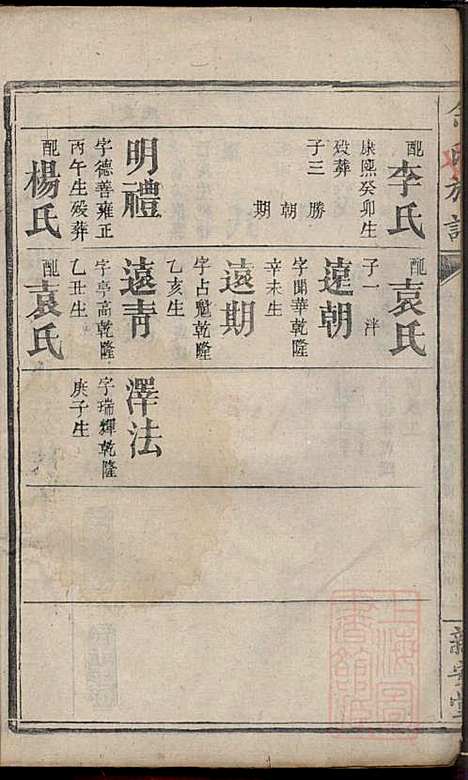 配
李氏
康熙癸卯生
歿葬
子三 勝
朝
期
明禮
字德善雍正
丙午生歿葬
配
楊氏
配
袁氏
子一 泮
遠朝
字開華乾隆
辛未生
遠期
字占魁乾隆
乙亥生
遠青
字亭高乾隆
乙丑生
配
袁氏
澤法
字瑞輝乾隆
庚子生
上海圖
書館藏